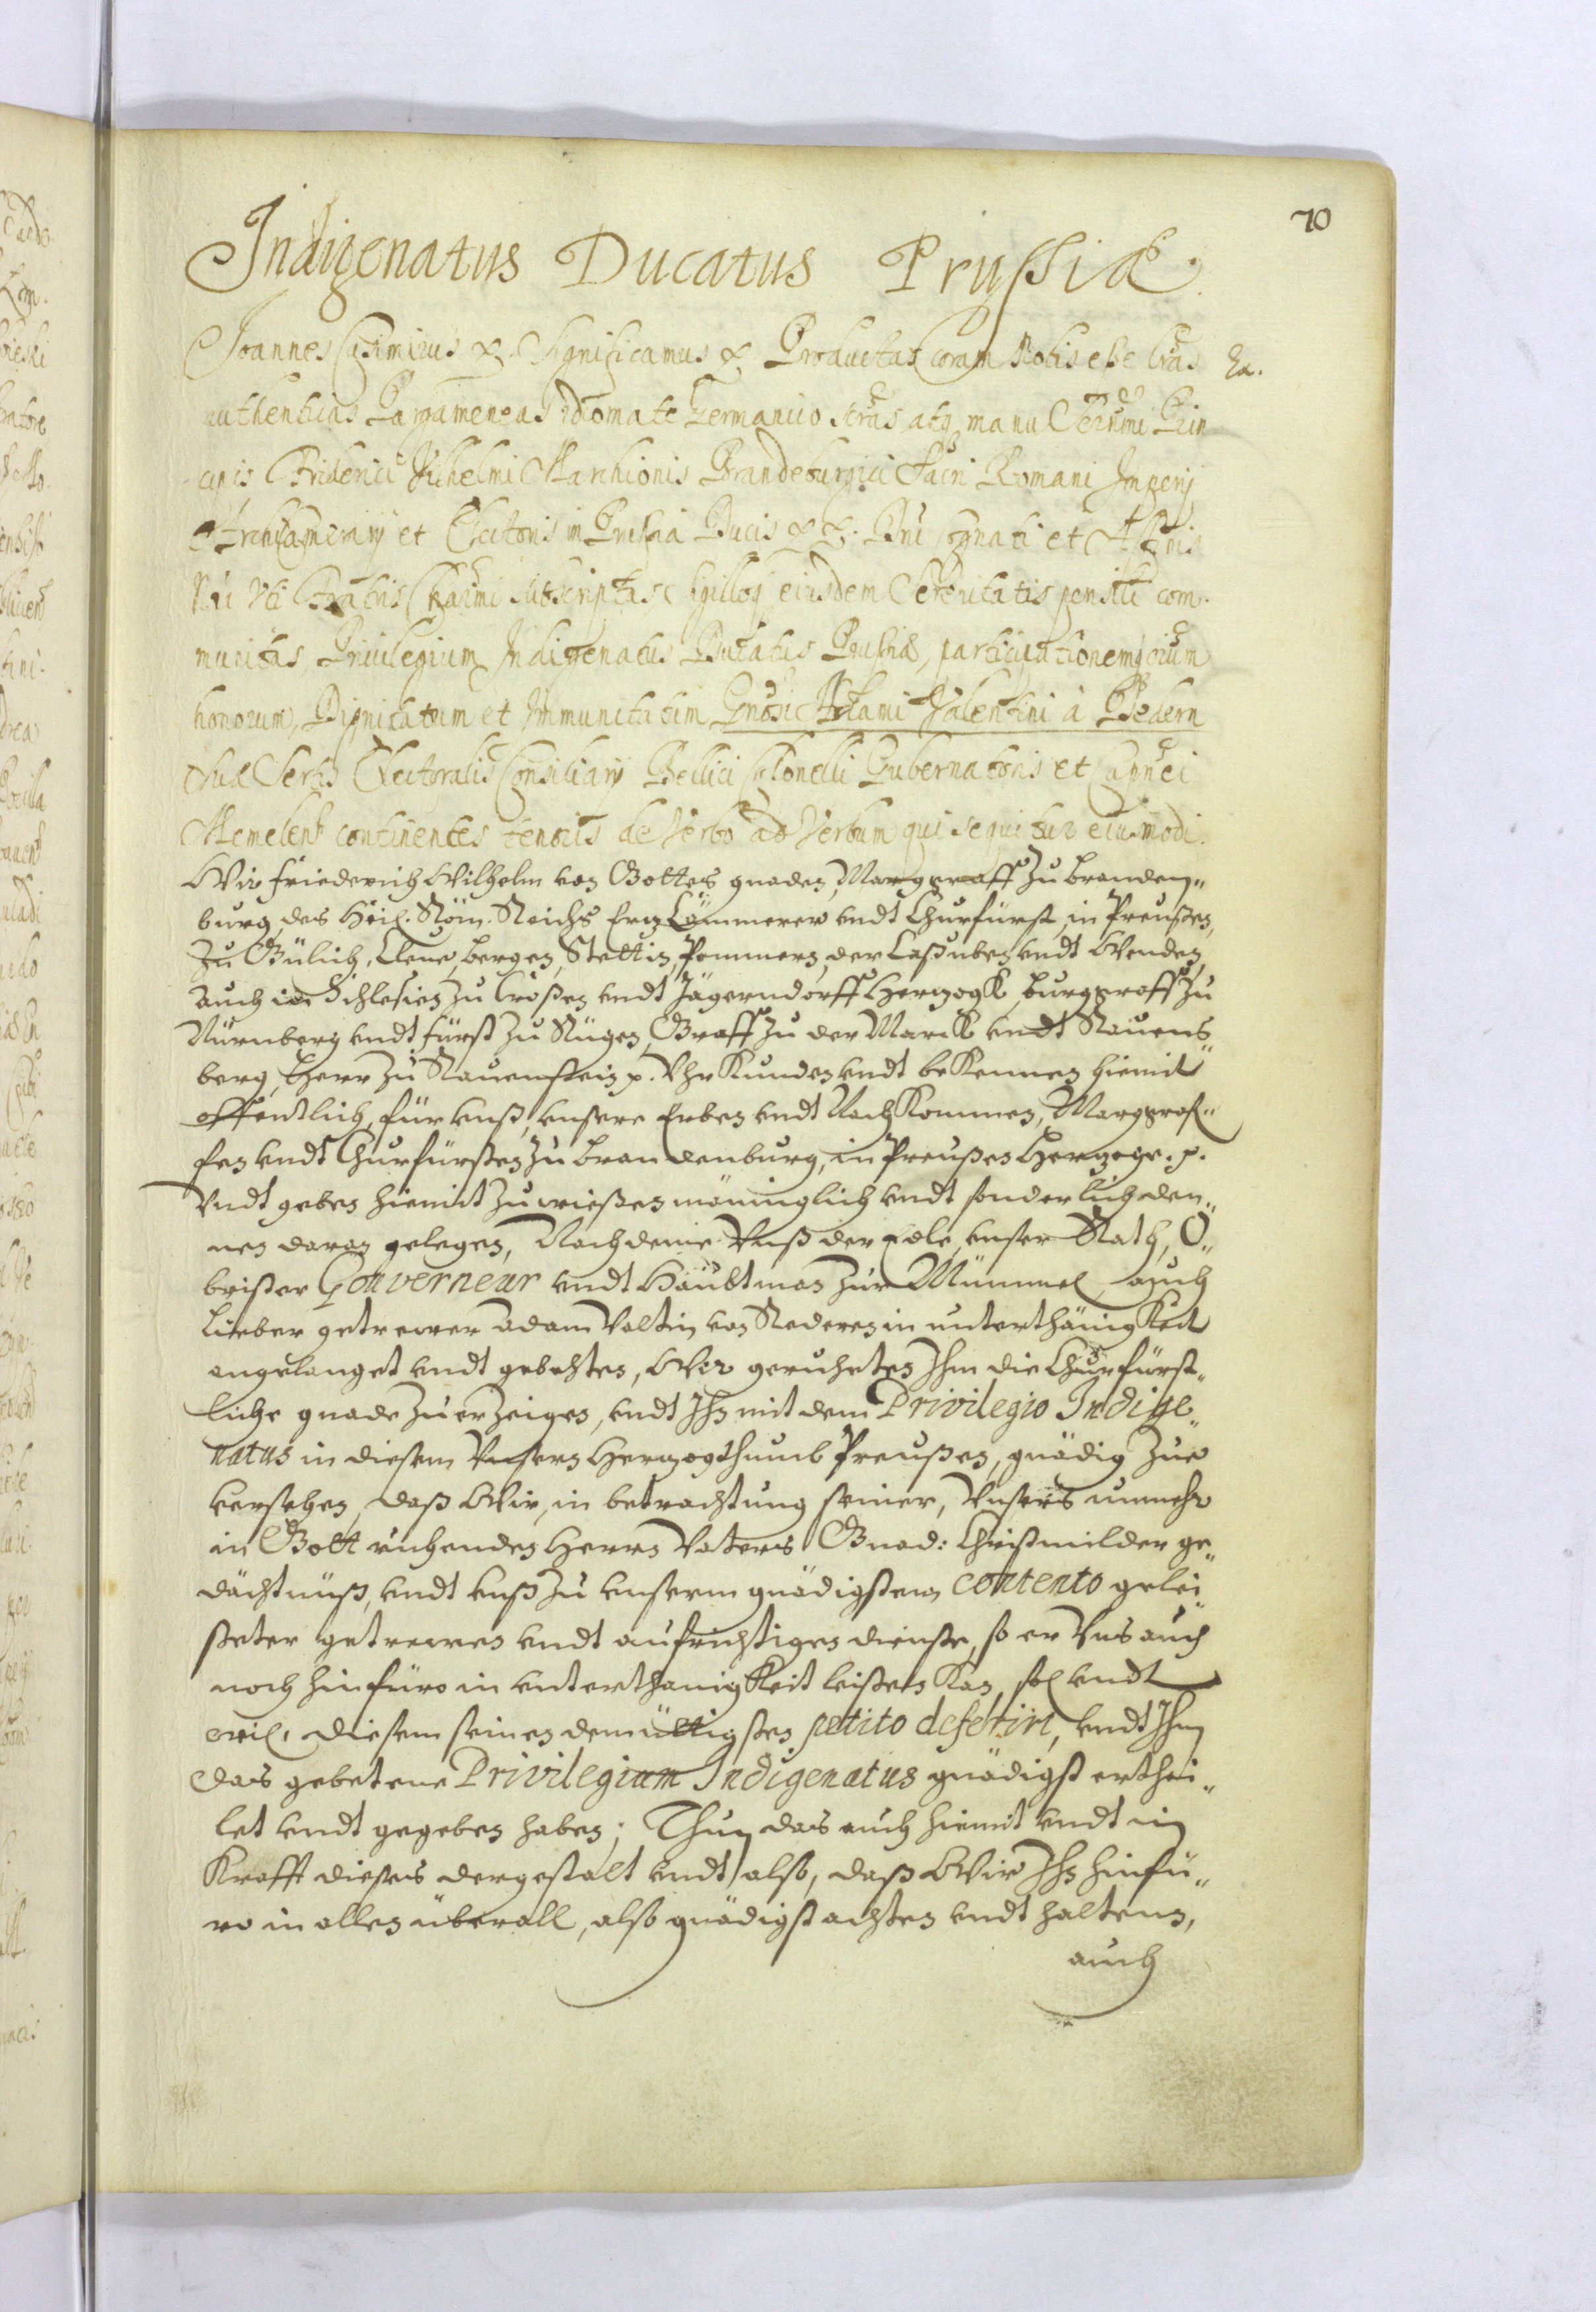 70
Indigenatus Ducatus Prussiæ.
Joannes Casimirus &. Significamus &. Productas coram Nobis esse lras
authenticas Pargameneas Idiomate Germanico scras atq manu Serñmi Prin
cipis Friderici Wilhelmi Marchionis Brandeburgici Sacri Romani Imperij
Archicamerarij et Electoris in Prussia Ducis &. &. Dni cognati et Affinis
Nri Uti Fratris Charmi subscriptas Sigilloq eiusdem Serenitatis pensili com-
munitas Privilegium Indigenatus Ducatus Prussiæ, participationemq oium
honorum, Dignitatum et Immunitatum Gnosi Adami Valentini à Redern
Suæ Sertis Electoralis Consiliarij Bellici Colonelli Gubernatoris et Capnei
Memelens continentes tenoris de Verbo ad Verbum qui sequitur eiusmodi.
Wir Friederich Wilhelm von Gottes gnaden, Marggraff zu Branden„
burg, des Heil. Röm. Reichs Ertz Cämmerer undt Churfürst, in Preußen,
Zu Gülich, Cleve, Bergen, Stettin, Pommern, der Caßuben undt Wenden,
auch in Schlesien zu Croßen undt Jägerndorff Hertzogk, Burggraff zu
Nürnberg undt Fürst zu Rügen, Graff zu der Marck undt Ravens„
berg, Herr zu Ravenstein p. Uhrkunden undt bekennen hiemit
offentlich, für unß, unsere Erben undt Nachkommen, Marggraf„
fen undt Churfürsten zu Brandenburg, in Preußen Hertzoge. p.
Undt geben hiemit zu wießen männiglich undt sonderlich den„
nen daran gelegen, Nachdeme Unß der Edle, unser Rath, O„
brister Gouverneur undt Häubtman zur Mümmel, auch
Lieber getrewer Adam Valtin von Rederen in unterthänigkeit
angelanget undt gebehten, Wir geruheten Ihm die Churfürst„
liche gnade zu erzeigen, undt Ihn mit dem Privilegio Indige„
natus in diesem Unsern Hertzogthumb Preußen, gnädig zue
versehen, daß Wir, in betrachtung seiner, Unsers nunmehr
in Gott ruhenden Herrn Vaters Gnad: Christmilder ge„
dächtnüß, undt unß zu unserm gnädigstem contento gelei„
steter getrewen undt aufrichtigen dienste, so er Uns auch
noch hinfüro in unterthanigkeit leisten kan, sol undt
wil, diesem seinen demüttigsten petito deferirt, undt Ihm
das gebetene Privilegium Indigenatus gnädigst erthei„
let undt gegeben haben; Thun das auch hiemit undt in
Krafft dieses dergestalt undt also, daß Wir Ihn hinfü„
ro in allen überall, also gnädigst achten undt haltenn,
auch